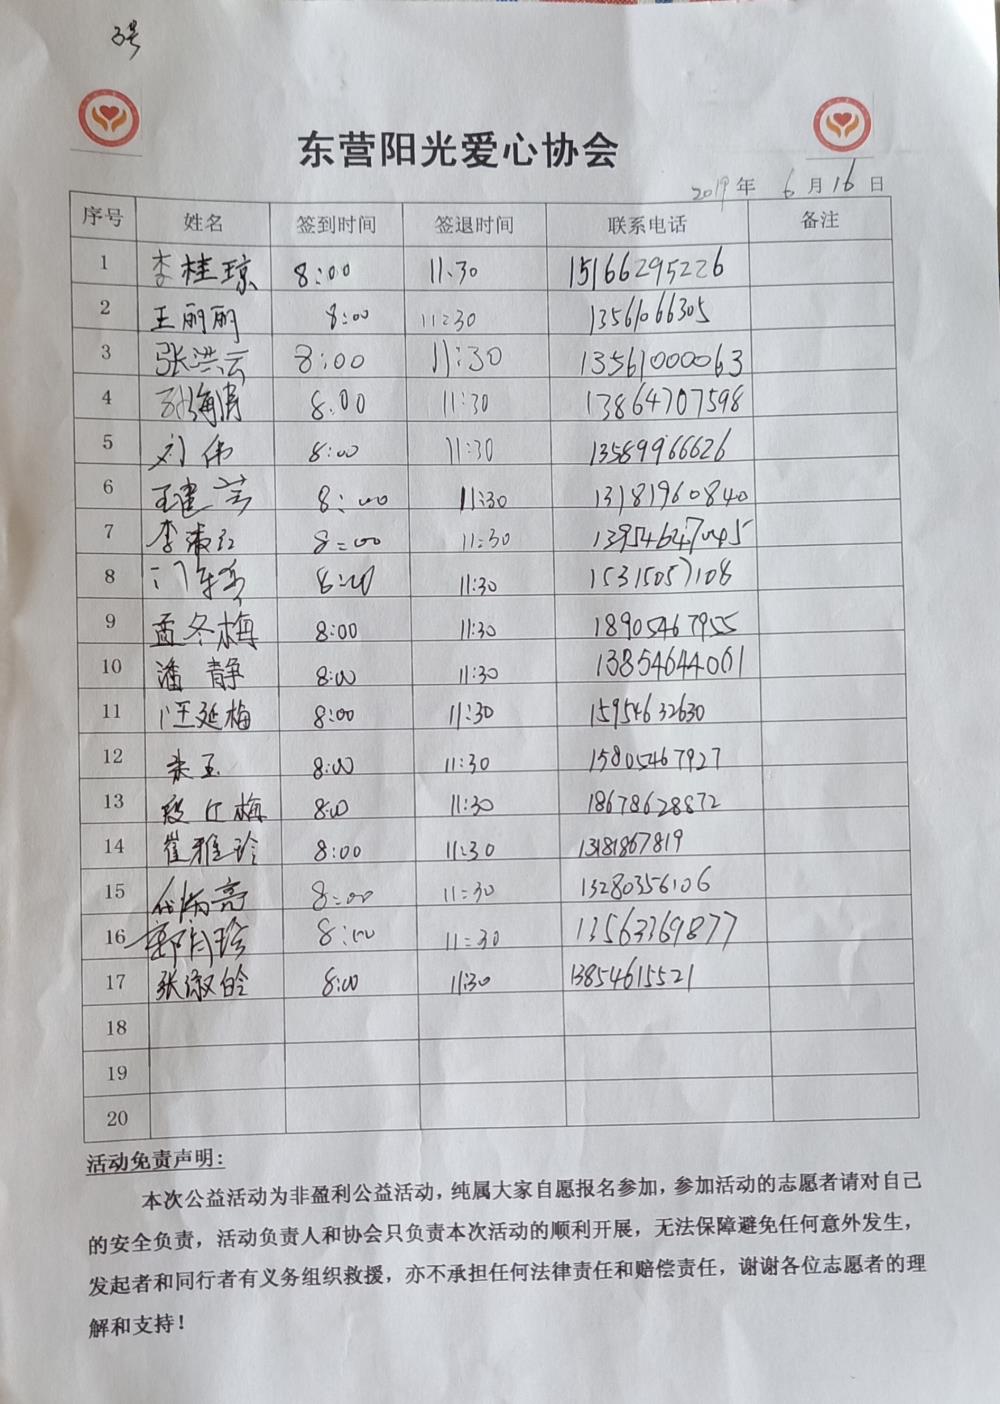 3号
东营阳光爱心协会
2019年 6月16日
序号 姓名 签到时间 签退时间 联系电话 备注
1 李桂琼 8:00 11:30 15166295226
2 王丽丽 8:00 11:30 13561066305
3 张洪云 8:00 11:30 13561000063
4 孙海涛 8:00 11:30 13864707598
5 刘伟 8:00 11:30 13589966626
6 王建芸 8:00 11:30 13181960840
7 李淑红 8:00 11:30
8 8:00 11:30 15315057108
9 孟冬梅 8:00 11:30 18905467955
10 潘静 8:00 11:30 13854644001
11 汪延梅 8:00 11:30 15954632630
12 张玉 8:00 11:30 15805467927
13 段红梅 8:00 11:30 18678628872
14 崔雅玲 8:00 11:30 13181867819
15 代炳亮 8:00 11:30 13280356106
16 郭月珍 8:00 11:30 13563369877
17 张淑皊 8:00 11:30 13854615521
18
19
20
活动免责声明:
本次公益活动为非盈利公益活动，纯属大家自愿报名参加，参加活动的志愿者请对自己
的安全负责，活动负责人和协会只负责本次活动的顺利开展，无法保障避免任何意外发生，
发起者和同行者有义务组织救援，亦不承担任何法律责任和赔偿责任，谢谢各位志愿者的理
解和支持！